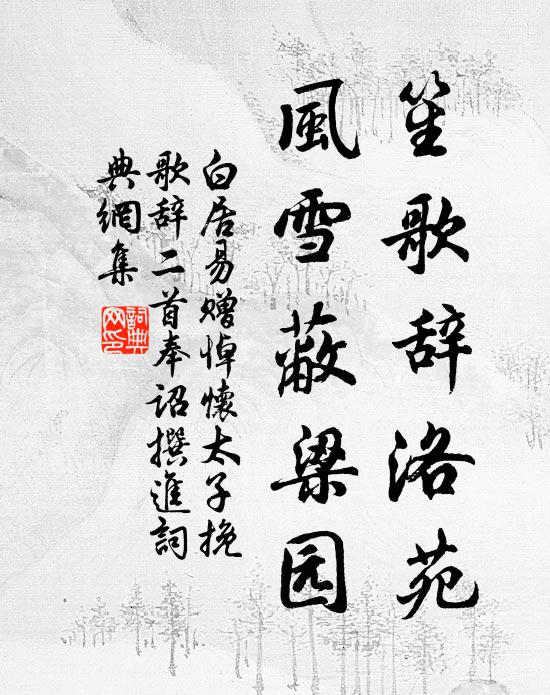 笙歌辞洛苑
風雪蔽梁园
白居易贈悼懷太子挽
歌辞二首奉詔撰進詞
典網集
詞典
网印